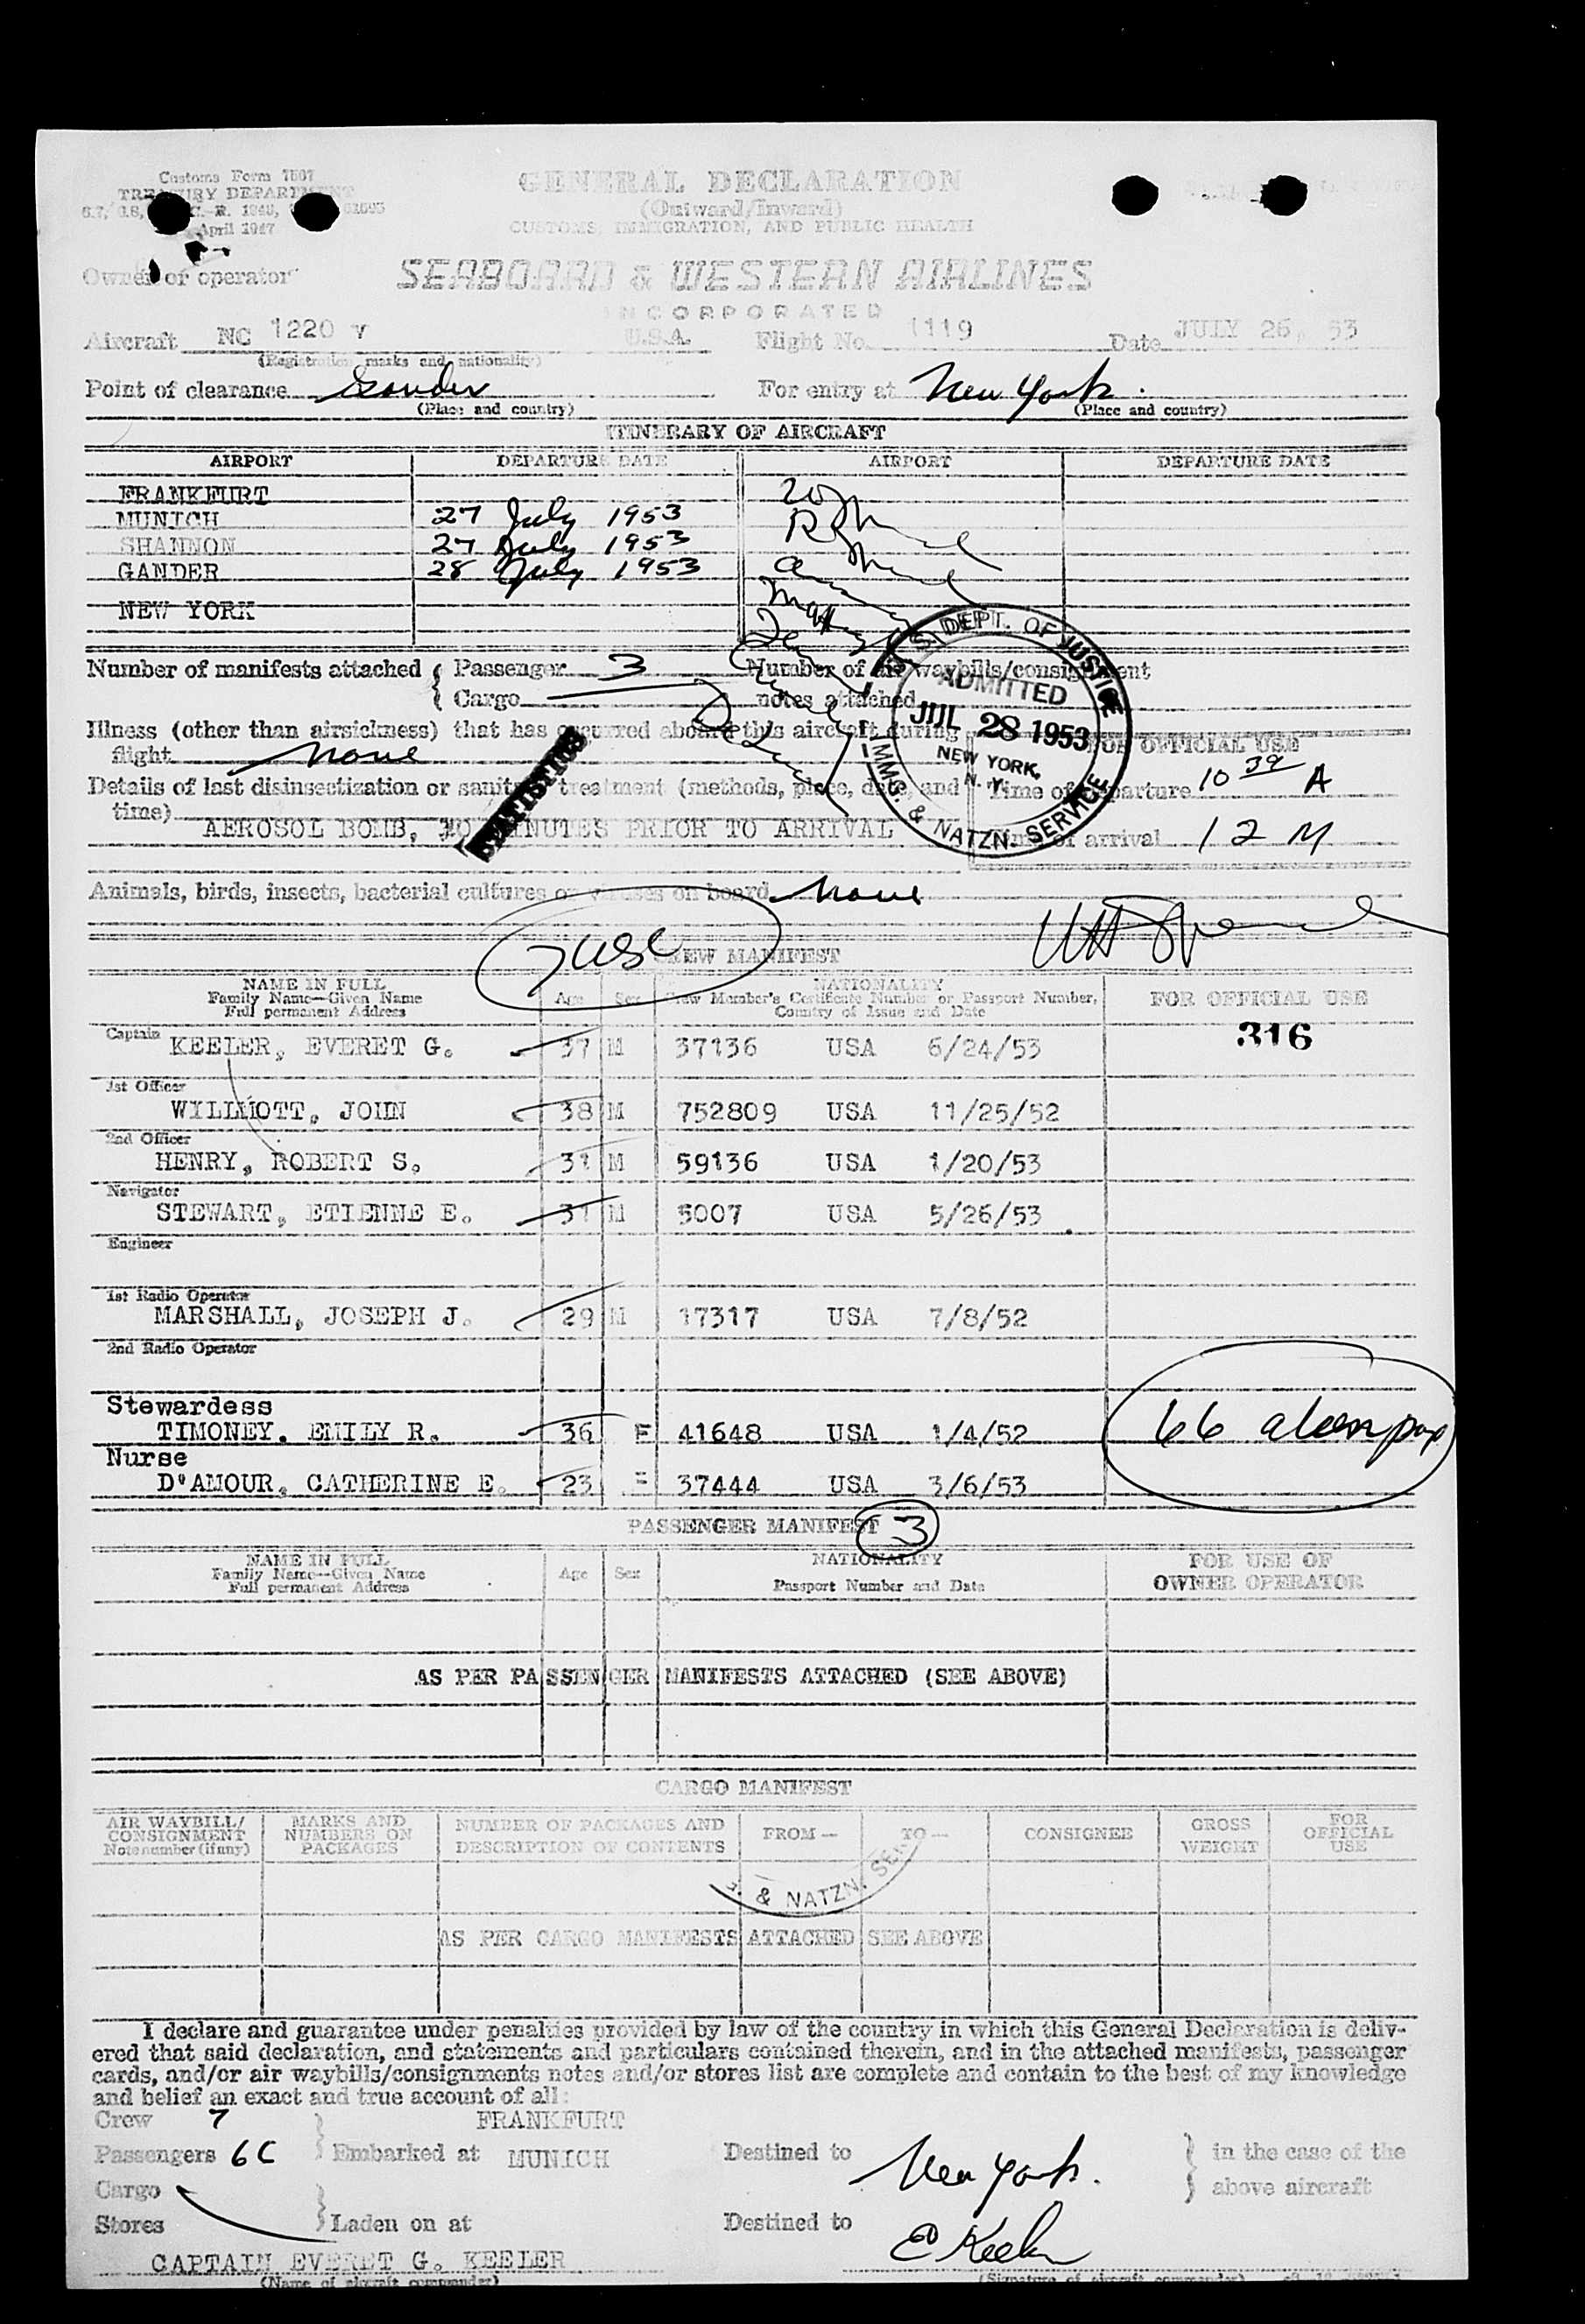 Customs Form 7507
TREASURY DEPARTMENT
April 1947
GENERAL DECLARATION
(Outward/Inward)
CUSTOMS, IMMIGRATION, AND PUBLIC HEALTH
Owner or operator SEABOARD & WESTERN AIRLINES
INCORPORATED
Aircraft NC 1220 V U.S.A. Flight No. 1119 Date JULY 26, 53
(Registration marks and nationality)
Point of clearance Gander For entry at New York.
(Place and country) (Place and country)
ITINERARY OF AIRCRAFT
AIRPORT DEPARTURE DATE AIRPORT DEPARTURE DATE
FRANKFURT
MUNICH 27 July 1953
SHANNON 27 July 1953
GANDER 28 July 1953
NEW YORK
Number of manifests attached { Passenger 3 Number of air waybills/consignment
{ Cargo notes attached
DEPT. OF JUSTICE
ADMITTED
JUL 28 1953
NEW YORK,
N. Y.
IMMG. & NATZN. SERVICE
Illness (other than airsickness) that has occurred aboard this aircraft during
flight None
FOR OFFICIAL USE
STATISTICS
Details of last disinsectization or sanitary treatment (methods, place, date, and
time) AEROSOL BOMB, MINUTES PRIOR TO ARRIVAL
Time of departure 10 39 A
Time of arrival 12 M
Animals, birds, insects, bacterial cultures or viruses on board None
CREW MANIFEST
NAME IN FULL
Family Name—Given Name
Full permanent Address
Age Sex
NATIONALITY
Crew Member's Certificate Number or Passport Number,
Country of Issue and Date
FOR OFFICIAL USE
316
Captain
KEELER, EVERET G. 37 M 37136 USA 6/24/53
1st Officer
WILLMOTT, JOHN 38 M 752809 USA 11/25/52
2nd Officer
HENRY, ROBERT S. 31 M 59136 USA 1/20/53
Navigator
STEWART, ETIENNE E. 31 M 5007 USA 5/26/53
Engineer
1st Radio Operator
MARSHALL, JOSEPH J. 29 M 17317 USA 7/8/52
2nd Radio Operator
Stewardess
TIMONEY. EMILY R. 36 F 41648 USA 1/4/52
66 alien pax
Nurse
D'AMOUR, CATHERINE E. 23 " 37444 USA 3/6/53
PASSENGER MANIFEST 3
NAME IN FULL
Family Name—Given Name
Full permanent Address
Age Sex
NATIONALITY
Passport Number and Date
FOR USE OF
OWNER OPERATOR
AS PER PASSENGER MANIFESTS ATTACHED (SEE ABOVE)
CARGO MANIFEST
AIR WAYBILL/
CONSIGNMENT
Note number (if any)
MARKS AND
NUMBERS ON
PACKAGES
NUMBER OF PACKAGES AND
DESCRIPTION OF CONTENTS
FROM— TO— CONSIGNEE
GROSS
WEIGHT
FOR
OFFICIAL
USE
& NATZN. SER
AS PER CARGO MANIFESTS ATTACHED SEE ABOVE
I declare and guarantee under penalties provided by law of the country in which this General Declaration is deliv-
ered that said declaration, and statements and particulars contained therein, and in the attached manifests, passenger
cards, and/or air waybills/consignments notes and/or stores list are complete and contain to the best of my knowledge
and belief an exact and true account of all:
Crew 7 FRANKFURT
Passengers 66 } Embarked at MUNICH Destined to New York. } in the case of the
Cargo above aircraft
Stores } Laden on at Destined to
CAPTAIN EVERET G. KEELER E Keeler
(Name of aircraft commander) (Signature of aircraft commander)